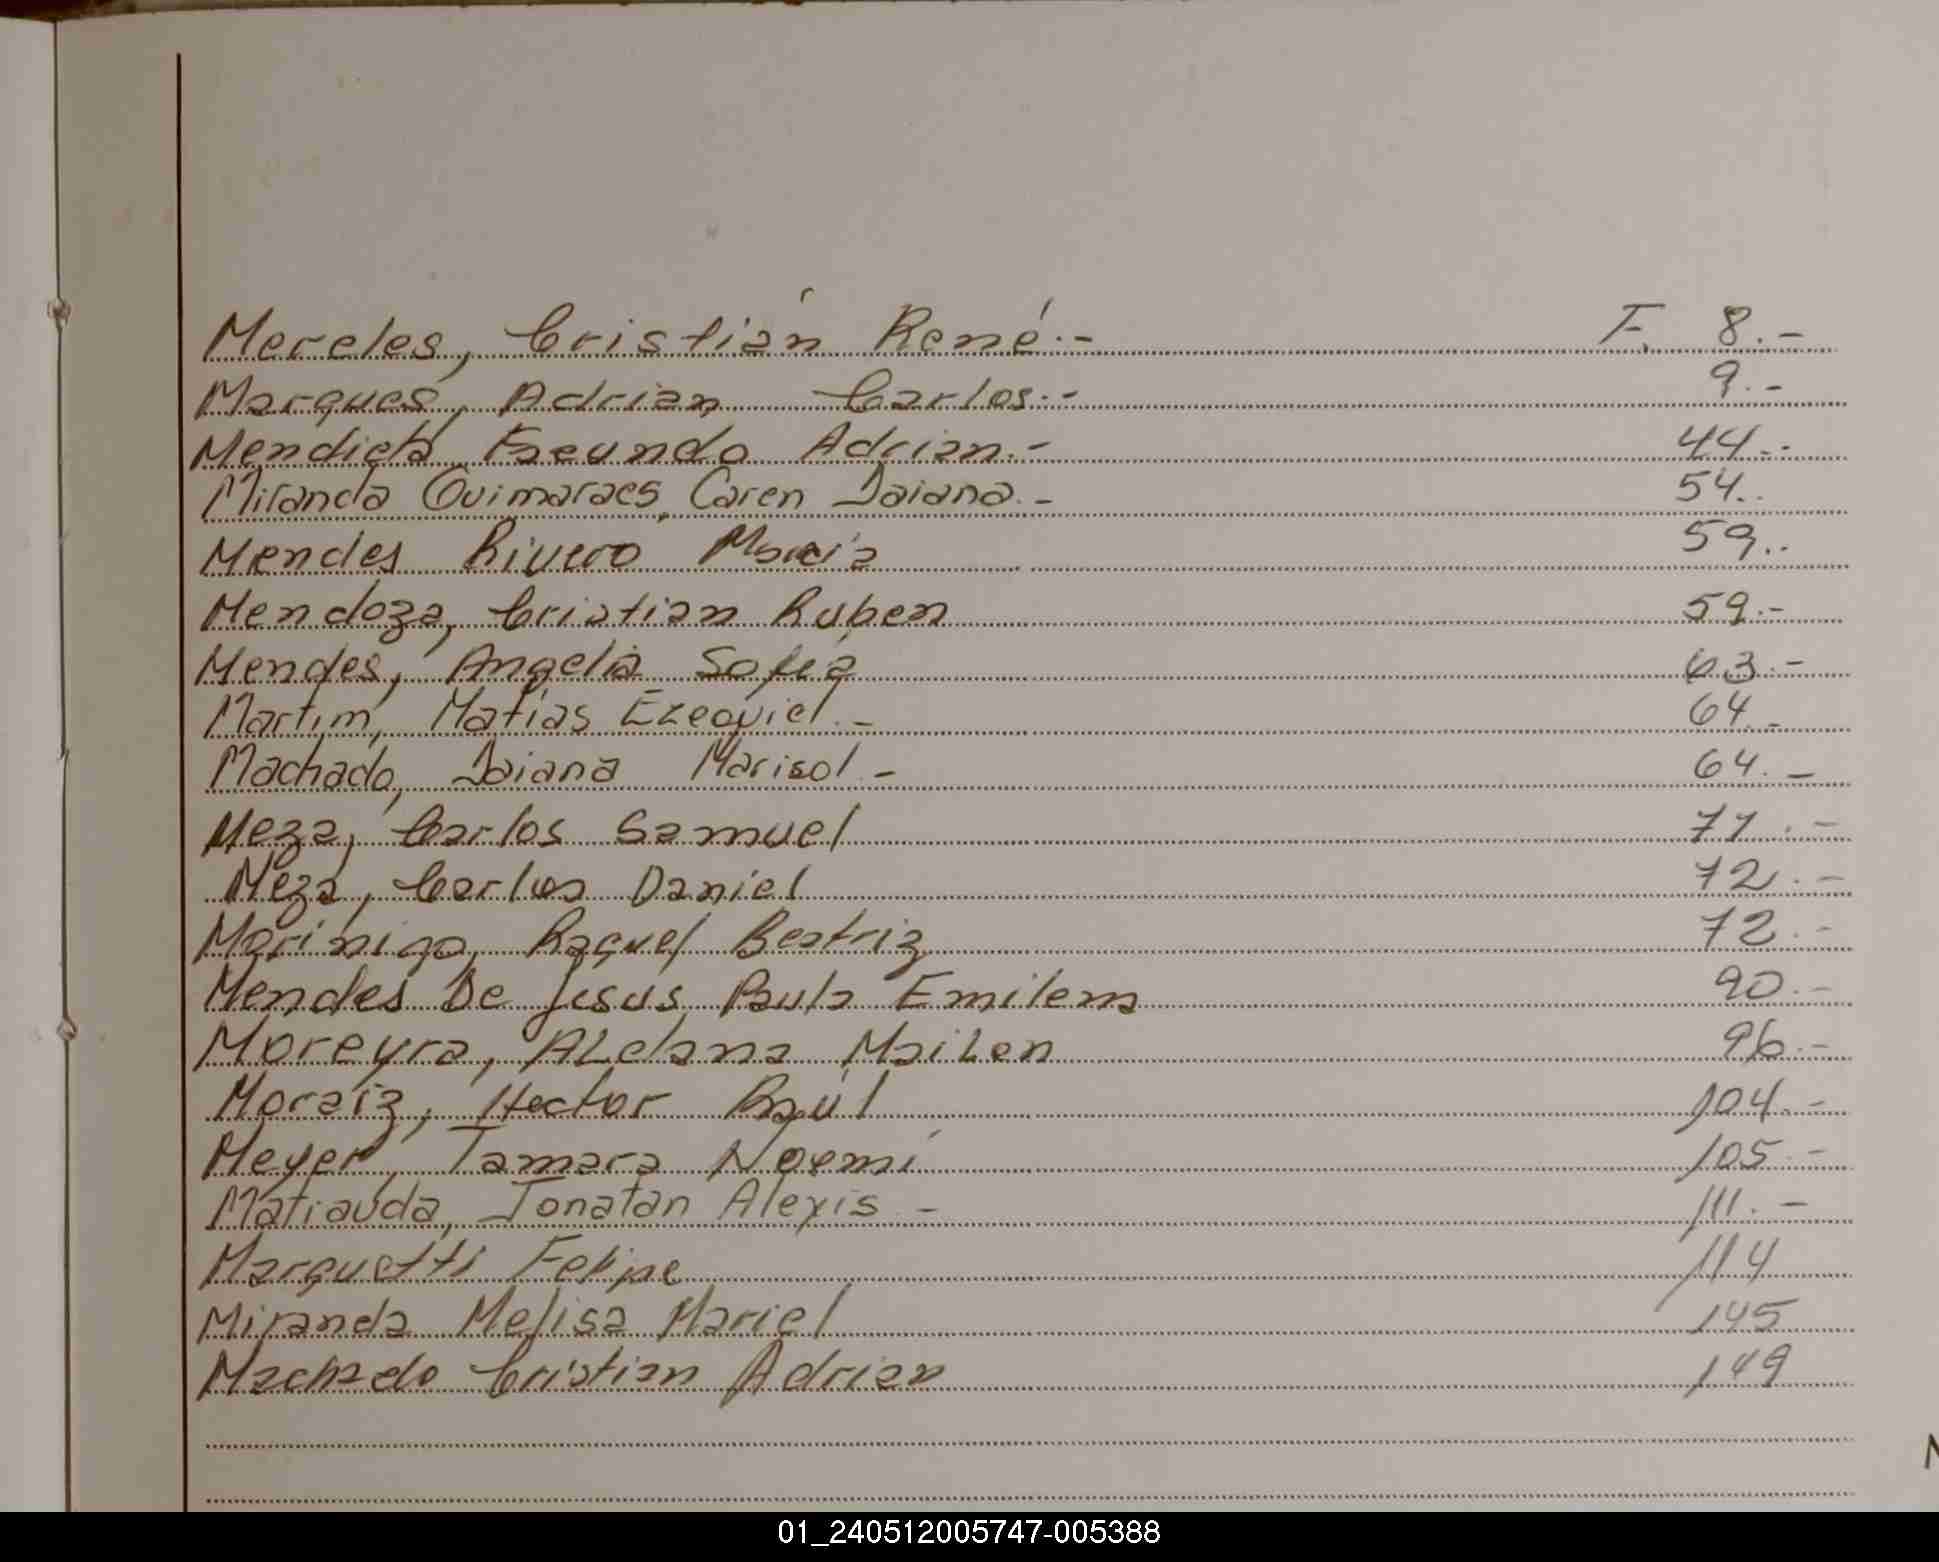 Mereles, Cristián René.- F. 8.-
Marques, Adrian Carlos.- 9.-
Mendieta Facundo Adrian.- 44.-
Miranda Guimaraes, Caren Daiana.- 54..
Mendes Rivero María 59..
Mendoza, Cristian Ruben 59.-
Mendes, Angelia Sofia 63.-
Martim, Matías Ezequiel.- 64.-
Machado, Daiana Marisol.- 64.-
Meza, Carlos Samuel 71.-
Meza, Carlos Daniel 72.-
Morínigo, Raquel Beatriz 72.-
Mendes De Jesus Paula Emilem 90.-
Moreyra, ALdana MaiLen 96.-
Moraiz, Hector Raúl 104.-
Meyer, Tamara Noemí 105.-
Matiauda, Jonatan Alexis.- 111.-
Marquetti Felipe 114
Miranda Melisa Mariel 145
Machado Cristian Adrian 149
01_240512005747-005388